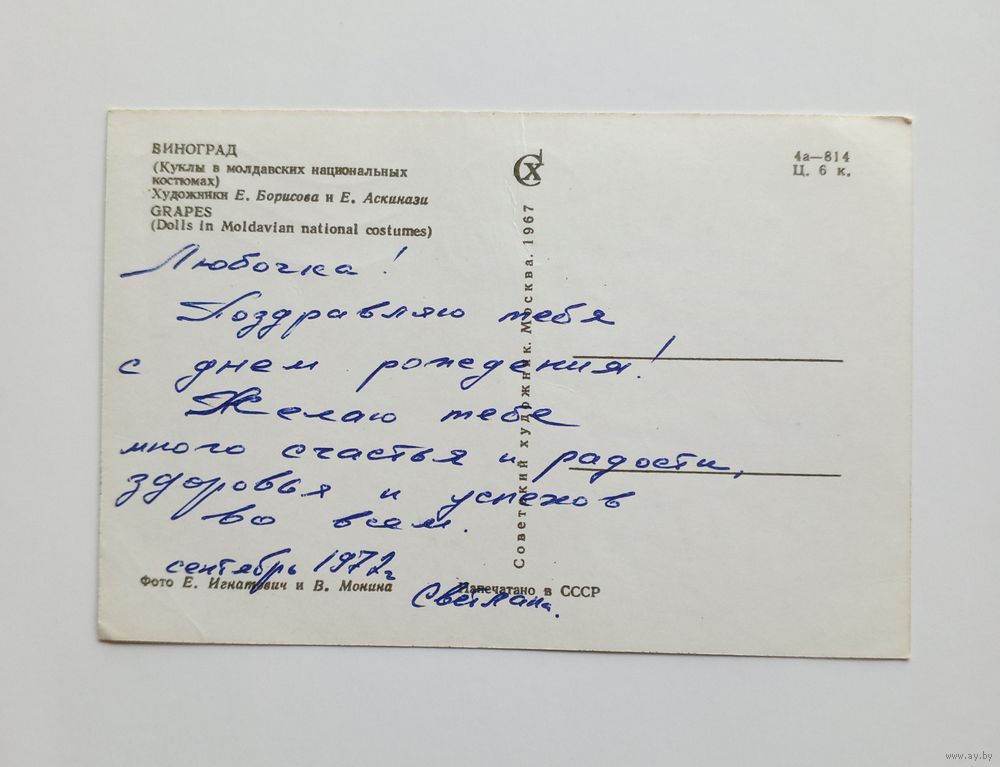 ВИНОГРАД
(Куклы в молдавских национальных
костюмах)
Художники Е. Борисова и Е. Аскинази
GRAPES
(Dolls in Moldavian national costumes)
СХ
4а—814
Ц. 6 к.
Советский художник. Москва. 1967
Любочка!
Поздравляю тебя
с днем рождения!
Желаю тебе
много счастья и радости,
здоровья и успехов
во всем.
сентябрь 1972г
Светлана.
Фото Е. Игнатович и В. Монина
Напечатано в СССР
www.ay.by